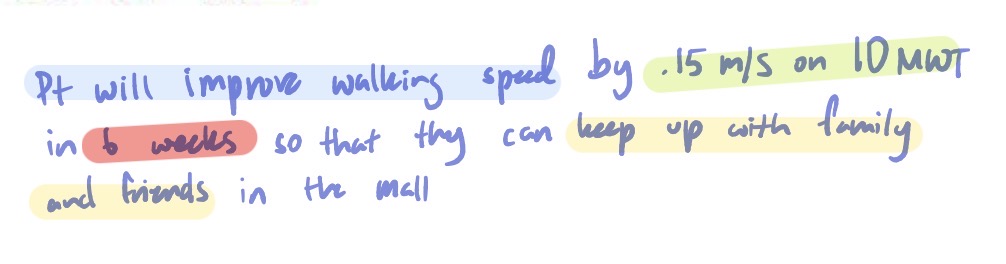 Pt will improve walking speed by .15 m/s on 10 MWT
in 6 weeks so that they can keep up with family
and friends in the mall